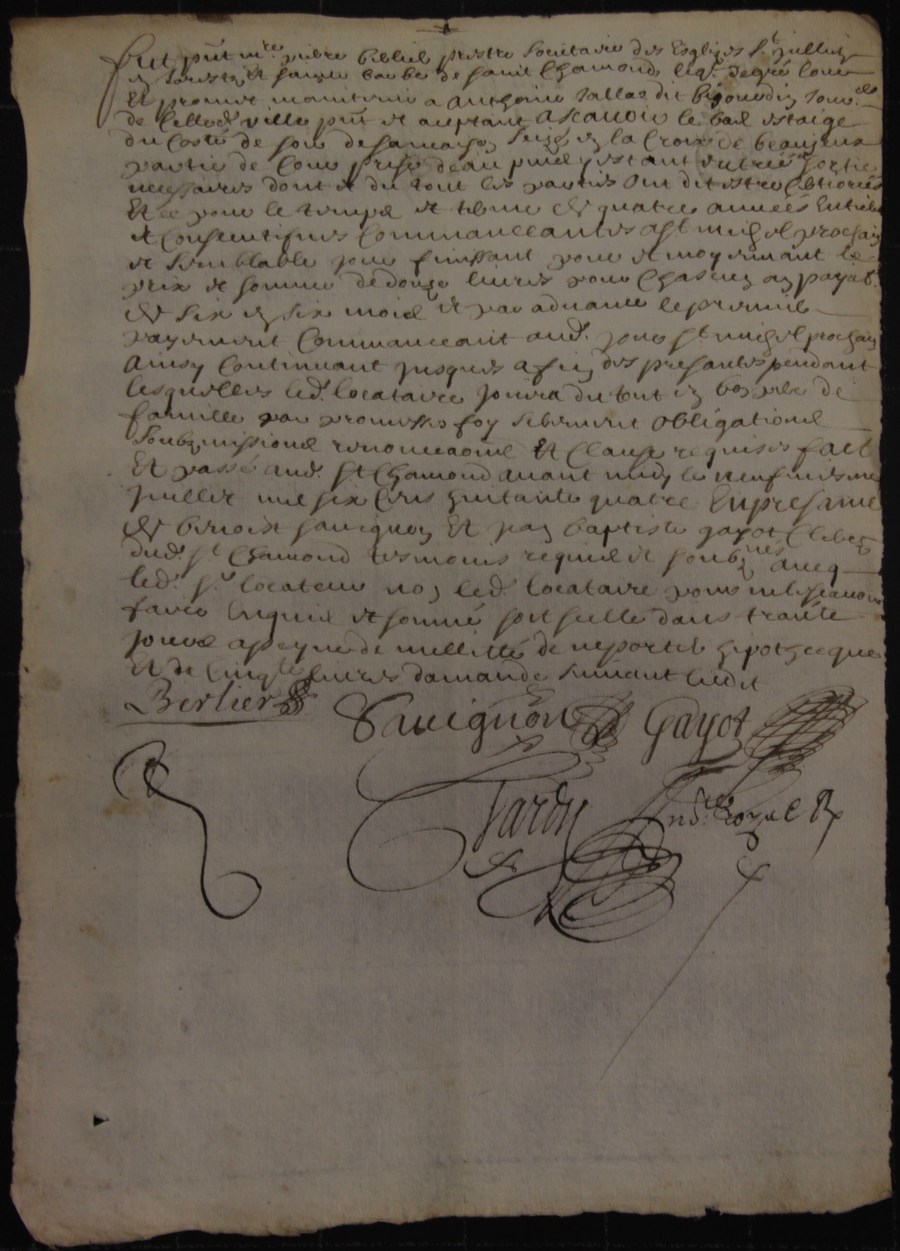 fut pnt mre pierre Berlier prestre societaire des Esglizes St Jullien
et sainte barbe de saint Chamond leql de gré loue
Et promet maintenir a Anthoine sallas dit
de lad. ville pnt et acceptant Ascavoir le bas estaige
du costé de soir de sa maison size en la Croix de beaujeu
partie de cour prise deau puid gistant entrée sortie
necessaires dont et du tout les parties ont dit estre
Et ce pour le temps et terme de quatre années Entieres
et Consecutives Commanceantes a st michel prochain
et semblable jour finissant pour et moyennant le
prix et somme de douze livres pour Chascun an payab.
de six en six mois et par advance le premier
payement Commanceant aud. jour st michel prochain
Ainsy Continuant jusques a fin des presantes pendant
lesquelles led. locataire jouira du tout en bon pere de
famille par promesses foy serment obligations
soubzmissions renonciaons Et Clauses requises fait
Et passé aud. st Chamond avant midy le neufviesme
juillet mil six Cens huitante quatre En presance
de benoist sauvignon Et jean baptiste gayot Clercs
dud. st Chamond tesmoins requis et soubznés avec
led. sr locateur non led. locataire pour ne
faire Enquis et sommé soit scellé dans traite
jours a peyne de nullité de ne porter hipotheque
Et de Cinqte livres damande suivant ledit
Berlier
Sauvignon Gayot
Tardy ndre Royal R